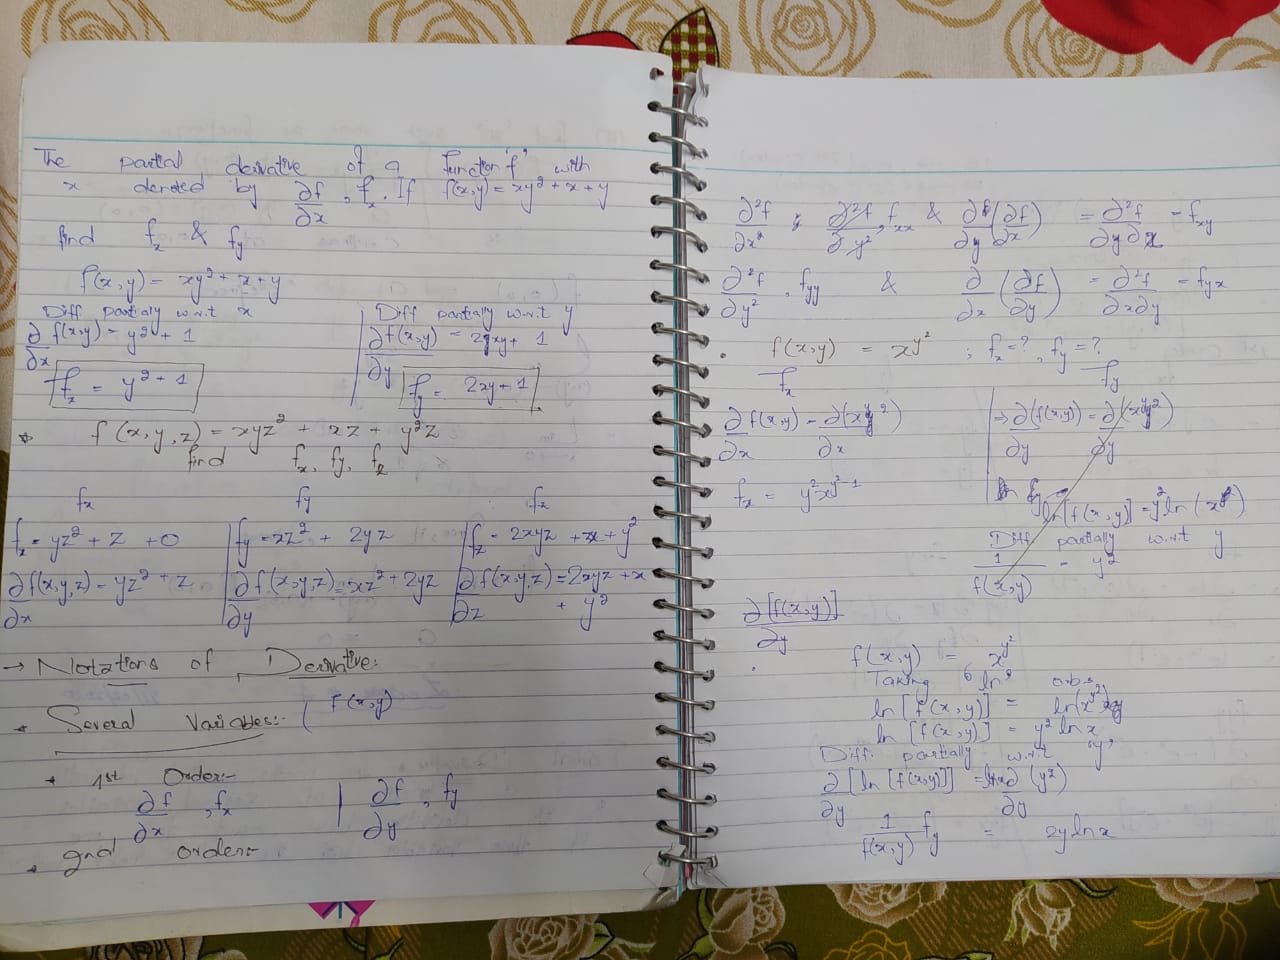 The partial derivative of a function "f" with
x denoted by ∂f/∂x, fx. If f(x,y) = xy² + x + y
find fx & fy
f(x,y) = xy² + x + y
Diff partially w.r.t x
∂/∂x f(x,y) = y² + 1
fx = y² + 1
Diff partially w.r.t y
∂f(x,y)/∂y = 2xy + 1
fy = 2xy + 1
* f(x,y,z) = xyz² + xz + y²z
find fx, fy, fz
fx
fx = yz² + z + 0
∂f(x,y,z)/∂x = yz² + z
fy
fy = xz² + 2yz
∂f(x,y,z)/∂y = xz² + 2yz
fx
fz = 2xyz + x + y²
∂f(x,y,z)/∂z = 2xyz + x
+ y²
→ Notations of Derivative:
* Several Variables:- ( f(x,y)
* 1st Order:-
∂f/∂x , fx | ∂f/∂y , fy
* 2nd order:-
∂²f/∂x² , ∂²f/∂y² , fxx & ∂/∂y (∂f/∂x) = ∂²f/∂y∂x = fxy
∂²f/∂y² , fyy & ∂/∂x (∂f/∂y) = ∂²f/∂x∂y = fyx
• f(x,y) = xy² ; fx = ? , fy = ?
fx
∂/∂x f(x,y) = ∂(xy²)/∂x
fx = y²x^(y²-1)
fy
⇒ ∂(f(x,y))/∂y = ∂(xy²)/∂y
fy
ln[f(x,y)] = y² ln(x)
Diff partially w.r.t y
1/f(x,y) = y²
∂[f(x,y)]/∂y
• f(x,y) = x^(y²)
Taking "ln" o.b.s
ln[f(x,y)] = ln(x^(y²))
ln[f(x,y)] = y² ln x
Diff. partially w.r.t "y"
∂/∂y [ln[f(x,y)]] = lnx ∂/∂y (y²)
1/f(x,y) fy = 2y ln x